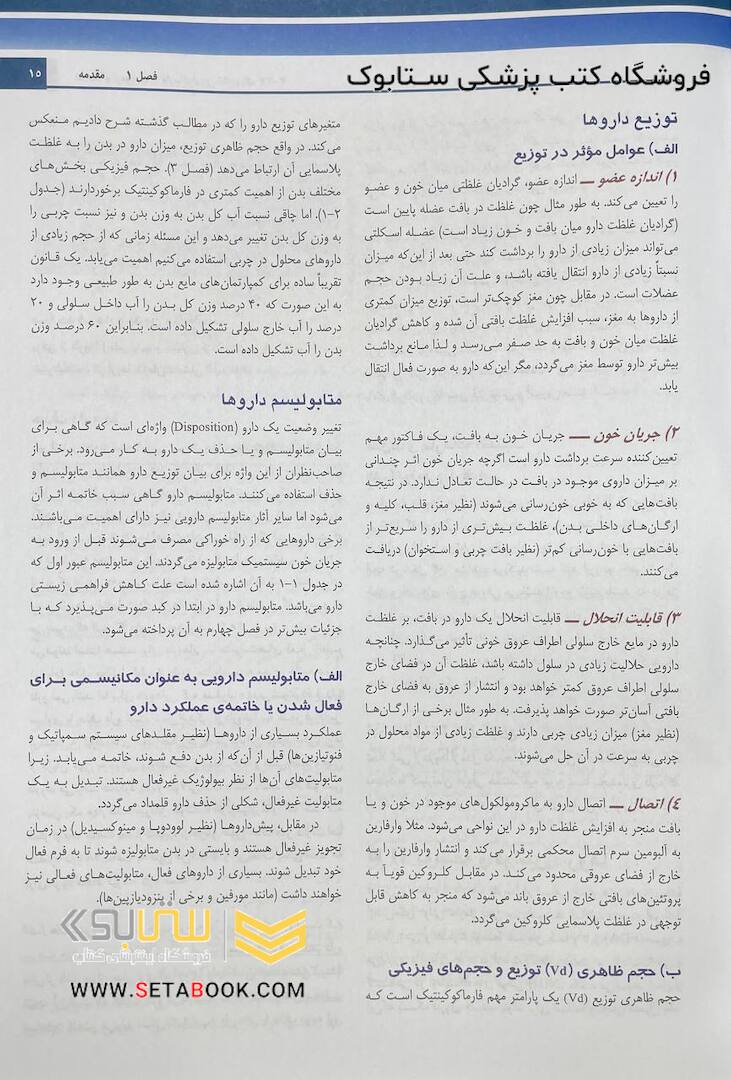 فروشگاه کتب پزشکی ستابوک
فصل ۱ مقدمه ۱۵
توزیع داروها
الف) عوامل مؤثر در توزیع
۱) اندازه عضو ــ اندازه عضو، گرادیان غلظتی میان خون و عضو
را تعیین می‌کند. به طور مثال چون غلظت در بافت عضله پایین است
(گرادیان غلظت دارو میان بافت و خون زیاد است) عضله اسکلتی
می‌تواند میزان زیادی از دارو را برداشت کند حتی بعد از این‌که میزان
نسبتاً زیادی از دارو انتقال یافته باشد، و علت آن زیاد بودن حجم
عضلات است. در مقابل چون مغز کوچک‌تر است، توزیع میزان کمتری
از داروها به مغز، سبب افزایش غلظت بافتی آن شده و کاهش گرادیان
غلظت میان خون و بافت به حد صفر می‌رسد و لذا مانع برداشت
بیش‌تر دارو توسط مغز می‌گردد، مگر این‌که دارو به صورت فعال انتقال
یابد.
۲) جریان خون ــ جریان خون به بافت، یک فاکتور مهم
تعیین‌کننده سرعت برداشت دارو است اگرچه جریان خون اثر چندانی
بر میزان داروی موجود در بافت در حالت تعادل ندارد. در نتیجه
بافت‌هایی که به خوبی خون‌رسانی می‌شوند (نظیر مغز، قلب، کلیه و
ارگان‌های داخلی بدن)، غلظت بیش‌تری از دارو را سریع‌تر از
بافت‌هایی با خون‌رسانی کم‌تر (نظیر بافت چربی و استخوان) دریافت
می‌کنند.
۳) قابلیت انحلال ــ قابلیت انحلال یک دارو در بافت، بر غلظت
دارو در مایع خارج سلولی اطراف عروق خونی تأثیر می‌گذارد. چنانچه
دارویی حلالیت زیادی در سلول داشته باشد، غلظت آن در فضای خارج
سلولی اطراف عروق کمتر خواهد بود و انتشار از عروق به فضای خارج
بافتی آسان‌تر صورت خواهد پذیرفت. به طور مثال برخی از ارگان‌ها
(نظیر مغز) میزان زیادی چربی دارند و غلظت زیادی از مواد محلول در
چربی به سرعت در آن حل می‌شوند.
۴) اتصال ــ اتصال دارو به ماکرومولکول‌های موجود در خون و یا
بافت منجر به افزایش غلظت دارو در این نواحی می‌شود. مثلا وارفارین
به آلبومین سرم اتصال محکمی برقرار می‌کند و انتشار وارفارین را به
خارج از فضای عروقی محدود می‌کند. در مقابل کلروکین قویاً به
پروتئین‌های بافتی خارج از عروق باند می‌شود که منجر به کاهش قابل
توجهی در غلظت پلاسمایی کلروکین می‌گردد.
ب) حجم ظاهری (Vd) توزیع و حجم‌های فیزیکی
حجم ظاهری توزیع (Vd) یک پارامتر مهم فارماکوکینتیک است که
متغیرهای توزیع دارو را که در مطالب گذشته شرح دادیم منعکس
می‌کند. در واقع حجم ظاهری توزیع، میزان دارو در بدن را به غلظت
پلاسمایی آن ارتباط می‌دهد (فصل ۳). حجم فیزیکی بخش‌های
مختلف بدن از اهمیت کمتری در فارماکوکینتیک برخوردارند (جدول
۲-۱). اما چاقی نسبت آب کل بدن به وزن بدن و نیز نسبت چربی را
به وزن کل بدن تغییر می‌دهد و این مسئله زمانی که از حجم زیادی از
داروهای محلول در چربی استفاده می‌کنیم اهمیت می‌یابد. یک قانون
تقریباً ساده برای کمپارتمان‌های مایع بدن به طور طبیعی وجود دارد
به این صورت که ۴۰ درصد وزن کل بدن را آب داخل سلولی و ۲۰
درصد را آب خارج سلولی تشکیل داده است. بنابراین ۶۰ درصد وزن
بدن را آب تشکیل داده است.
متابولیسم داروها
تغییر وضعیت یک دارو (Disposition) واژه‌ای است که گاهی برای
بیان متابولیسم و یا حذف یک دارو به کار می‌رود. برخی از
صاحب‌نظران از این واژه برای بیان توزیع دارو همانند متابولیسم و
حذف استفاده می‌کنند. متابولیسم دارو گاهی سبب خاتمه اثر آن
می‌شود اما سایر آثار متابولیسم دارویی نیز دارای اهمیت می‌باشند.
برخی داروهایی که از راه خوراکی مصرف می‌شوند قبل از ورود به
جریان خون سیستمیک متابولیزه می‌گردند. این متابولیسم عبور اول که
در جدول ۱-۱ به آن اشاره شده است علت کاهش فراهمی زیستی
دارو می‌باشد. متابولیسم دارو در ابتدا در کبد صورت می‌پذیرد که با
جزئیات بیش‌تر در فصل چهارم به آن پرداخته می‌شود.
الف) متابولیسم دارویی به عنوان مکانیسمی برای
فعال شدن یا خاتمه‌ی عملکرد دارو
عملکرد بسیاری از داروها (نظیر مقلدهای سیستم سمپاتیک و
فنوتیازین‌ها) قبل از آن‌که از بدن دفع شوند، خاتمه می‌یابد. زیرا
متابولیت‌های آن‌ها از نظر بیولوژیک غیرفعال هستند. تبدیل به یک
متابولیت غیرفعال، شکلی از حذف دارو قلمداد می‌گردد.
در مقابل، پیش‌داروها (نظیر لوودوپا و مینوکسیدیل) در زمان
تجویز غیرفعال هستند و بایستی در بدن متابولیزه شوند تا به فرم فعال
خود تبدیل شوند. بسیاری از داروهای فعال، متابولیت‌های فعالی نیز
خواهند داشت (مانند مورفین و برخی از بنزودیازپین‌ها).
ستابوک
فروشگاه اینترنتی کتاب
WWW.SETABOOK.COM